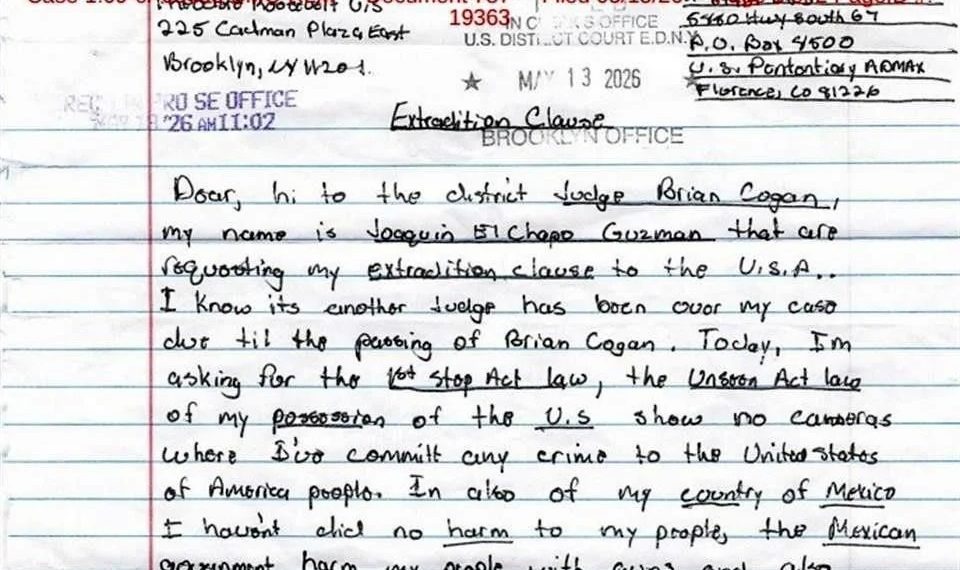 Theodore Roosevelt U.S
225 Cadman Plaza East
Brooklyn, NY 11201.
19363
OFFICE
U.S. DISTRICT COURT E.D.N.Y
★ MAY 13 2026 ★
BROOKLYN OFFICE
PRO SE OFFICE
'26 AM11:02
5880 Hwy South 67
P.O. Box 8500
U.S. Pentontiary ADMAX
Florence, CO 81226
Extradition Clause
Dear, hi to the district Judge Brian Cogan,
my name is Joaquin El Chapo Guzman that are
requesting my extradition clause to the U.S.A..
I know its another Judge has been over my case
due til the passing of Brian Cogan. Today, Im
asking for the 1st Stop Act law, the Unseen Act law
of my possession of the U.S show no cameras
where I've committ any crime to the United States
of America people. In also of my country of Mexico
I haven't did no harm to my people, the Mexican
government harm my people with guns and also